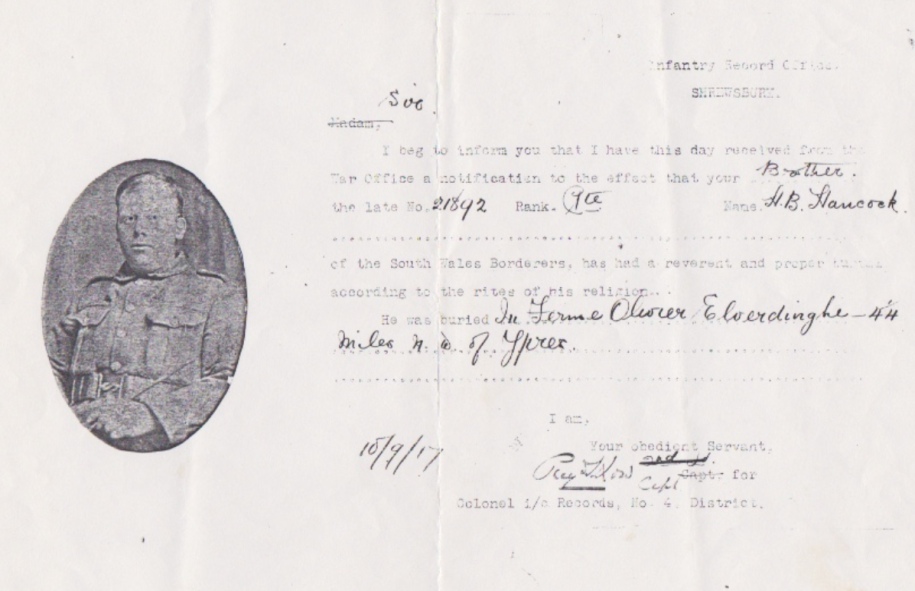 Infantry Record Office.
SHREWSBURY.
Sir.
Madam,
I beg to inform you that I have this day received from the
War Office a notification to the effect that your Brother.
the late No. 21892 Rank. Pte Name. H.B. Hancock.
of the South Wales Borderers, has had a reverent and proper burial
according to the rites of his religion...
He was buried In Ferme Olivier Elverdinghe - 4¼
miles N. W. of Ypres.
I am,
10/9/17
Your obedient Servant,
Capt Capt. for
Colonel i/c Records, No. 4. District.